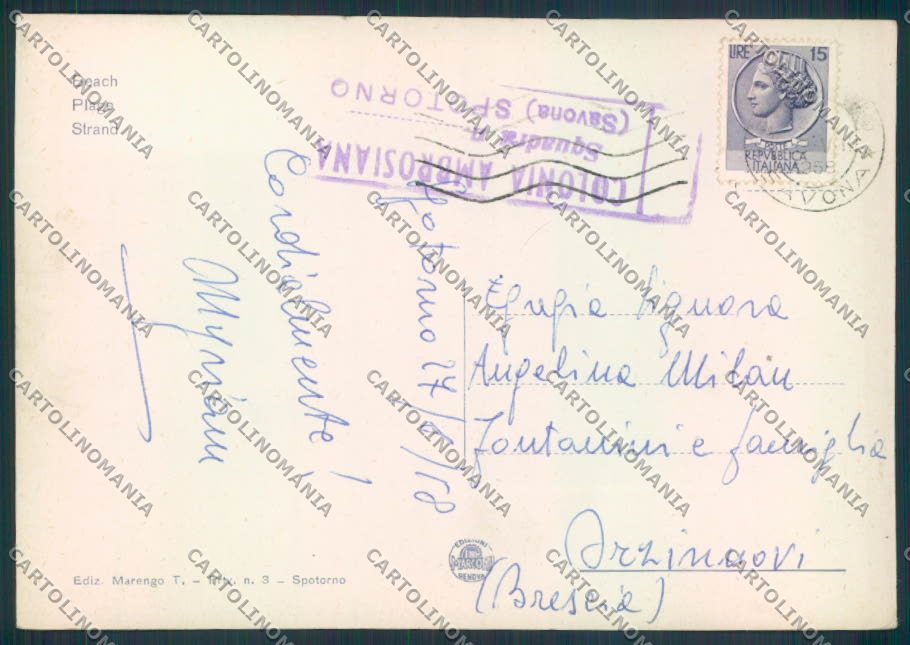 Beach
Plage
Strand
COLONIA AMBROSIANA
Squadra
(Savona) SPOTORNO
LIRE 15
POSTE
REPVBBLICA
ITALIANA
1958
Spotorno 27/ /58
Cordialmente!
Myriam
Egregia Signora
Angelina Milan
Fontanini e famiglia
Orzinuovi
(Brescia)
Ediz. Marengo T. - n. 3 - Spotorno
EDIZIONI
MARCONI
GENOVA
CARTOLINOMANIA